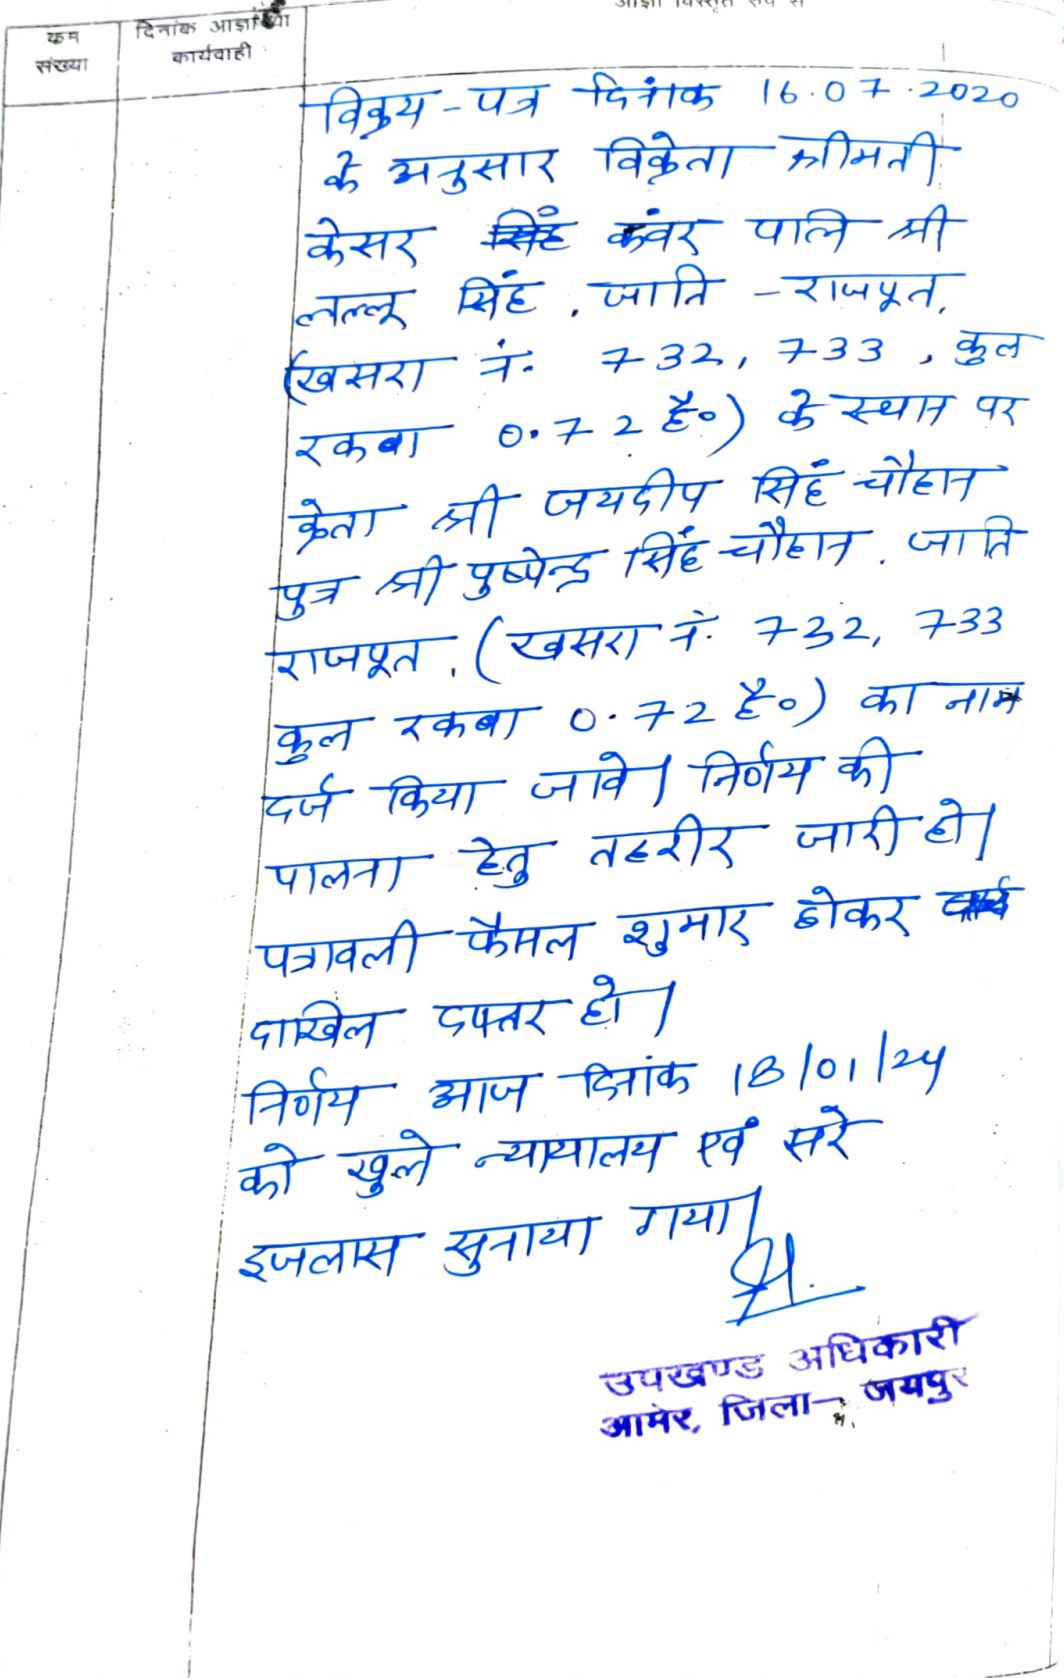 आज्ञा विस्तृत रूप से
क्रम संख्या
दिनांक आज्ञा या कार्यवाही
विक्रय-पत्र दिनांक 16.07.2020
के अनुसार विक्रेता श्रीमती
केसर सिंह कंवर पत्नि श्री
लल्लू सिंह, जाति - राजपूत,
(खसरा नं. 732, 733, कुल
रकबा 0.72 है०) के स्थान पर
क्रेता श्री जयदीप सिंह चौहान
पुत्र श्री पुष्पेन्द्र सिंह चौहान, जाति
राजपूत, (खसरा नं. 732, 733
कुल रकबा 0.72 है०) का नाम
दर्ज किया जावे। निर्णय की
पालना हेतु तहरीर जारी हो।
पत्रावली फैसल शुमार होकर
दाखिल दफ्तर हो।
निर्णय आज दिनांक 18/01/24
को खुले न्यायालय एवं सरे
इजलास सुनाया गया।
उपखण्ड अधिकारी
आमेर, जिला- जयपुर